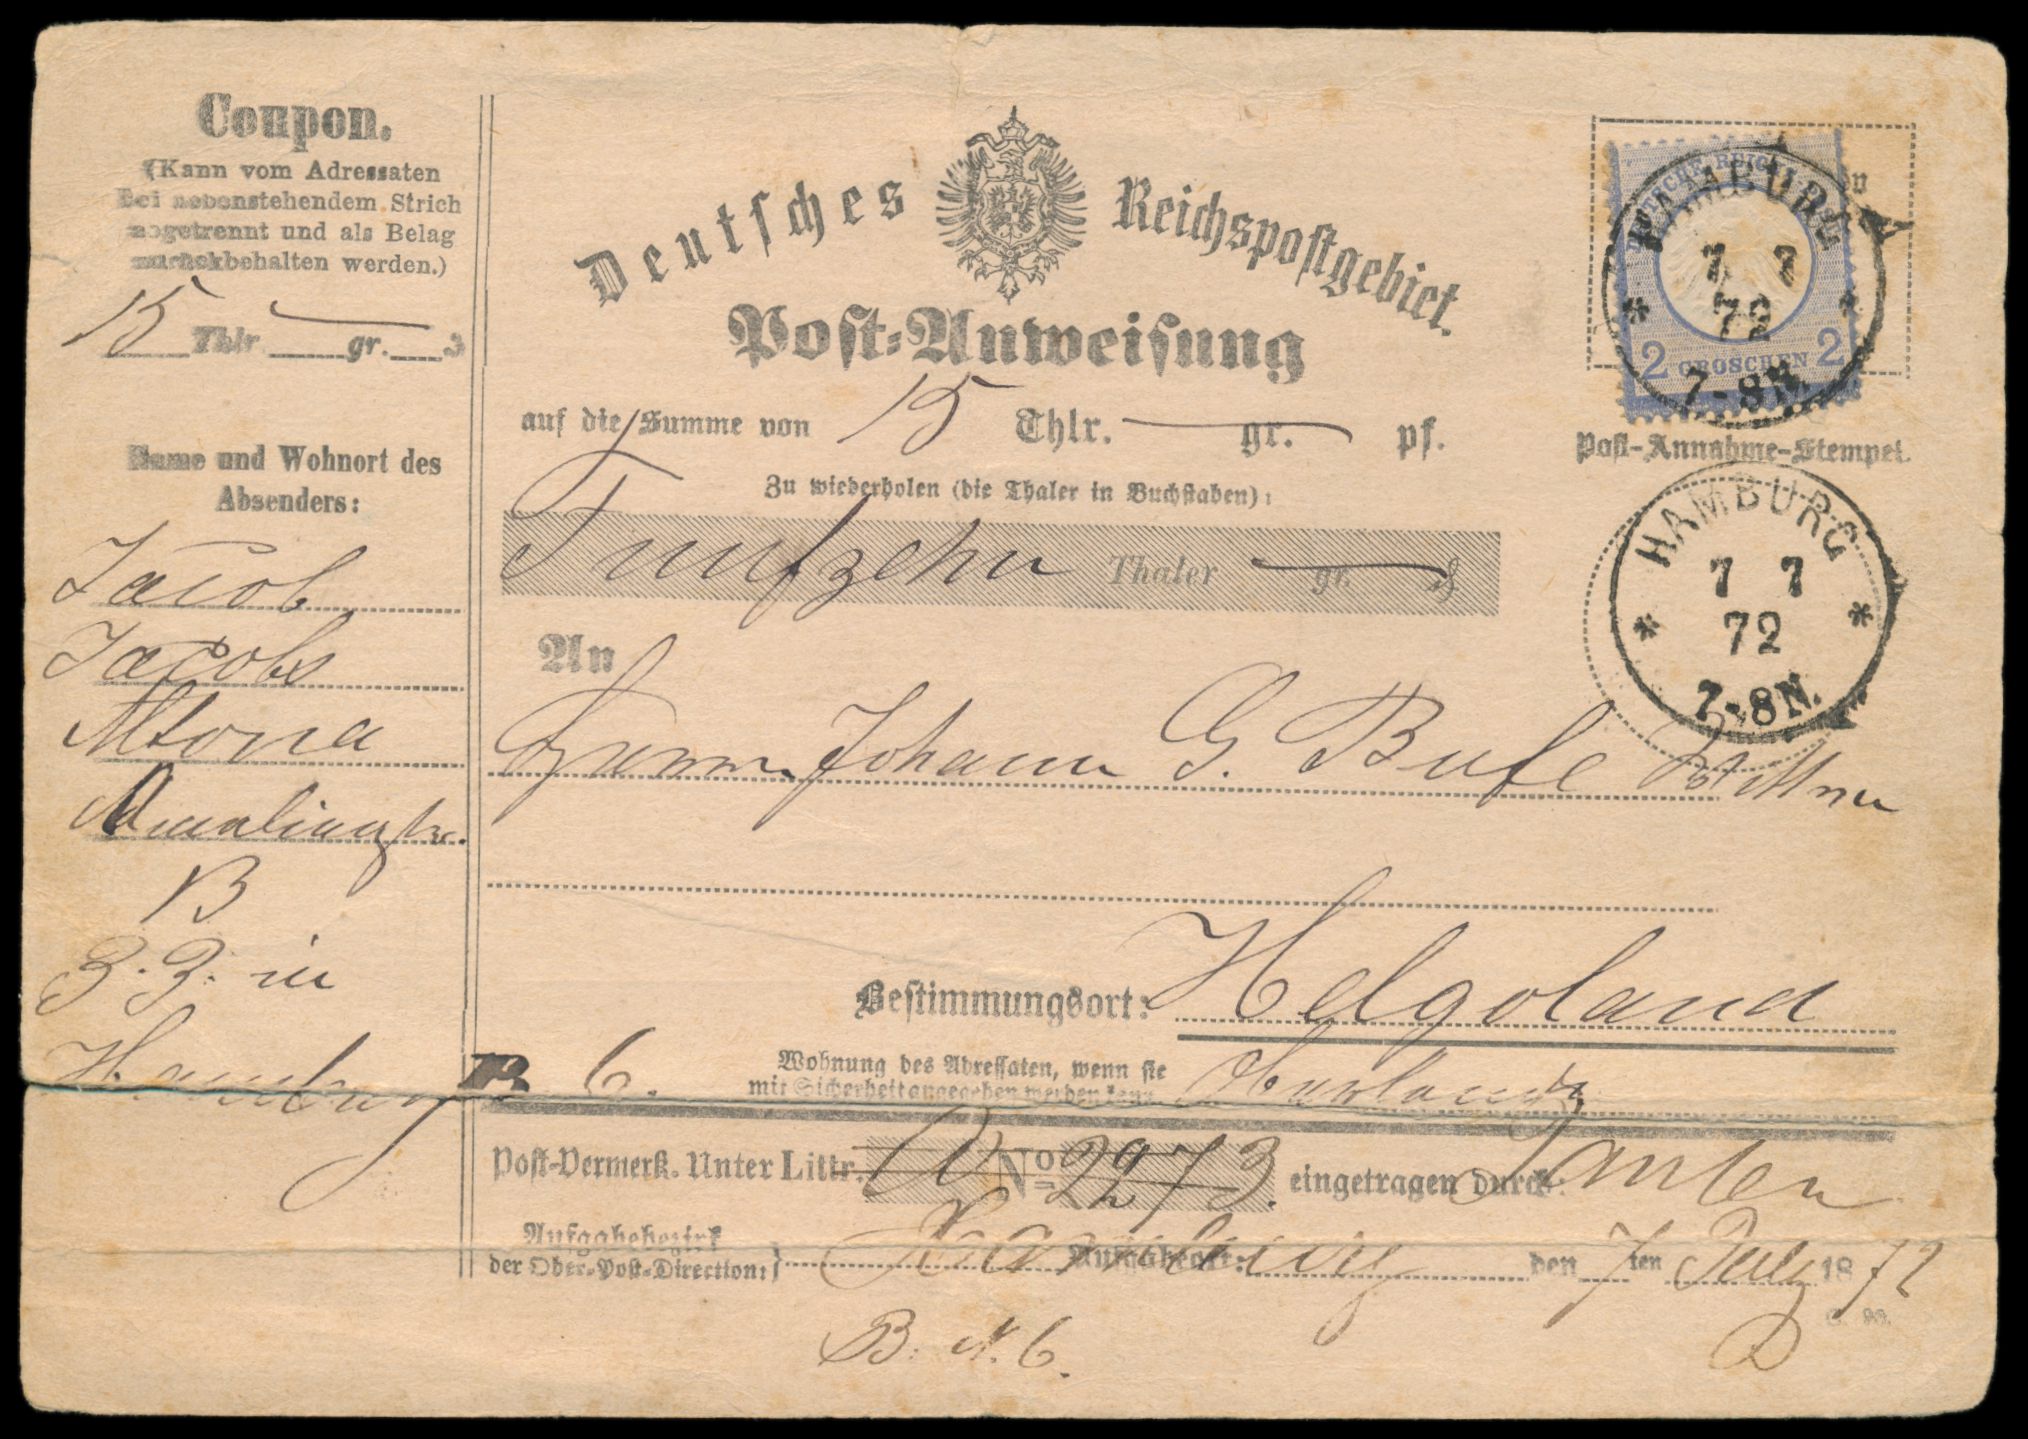 Coupon.
(Kann vom Adressaten
bei nebenstehendem Strich
abgetrennt und als Belag
zurückbehalten werden.)
15 Thlr. gr.
Name und Wohnort des
Absenders:
Jacob
Jacobs
Altona
Amalienstr.
B
Z. Z. in
Hamburg
Deutsches Reichspostgebiet.
Post-Anweisung
auf die Summe von 15 Thlr. gr. pf.
Zu wiederholen (die Thaler in Buchstaben):
Funfzehn Thaler gr.
An
Herrn Johann G. Bufe
Bestimmungsort: Helgoland
B 6.
Wohnung des Adressaten, wenn sie
mit Sicherheit angegeben werden kann.
Post-Vermerk. Unter Littr. No 2273. eingetragen durch:
Aufgabebezirk
der Ober-Post-Direction:
Hamburg Aufgabeort: den 7ten July 1872
B. N. 6.
DEUTSCHE REICHS
2 GROSCHEN 2
HAMBURG
7 7
72
7-8N.
Post-Annahme-Stempel.
HAMBURG
7 7
72
7-8N.